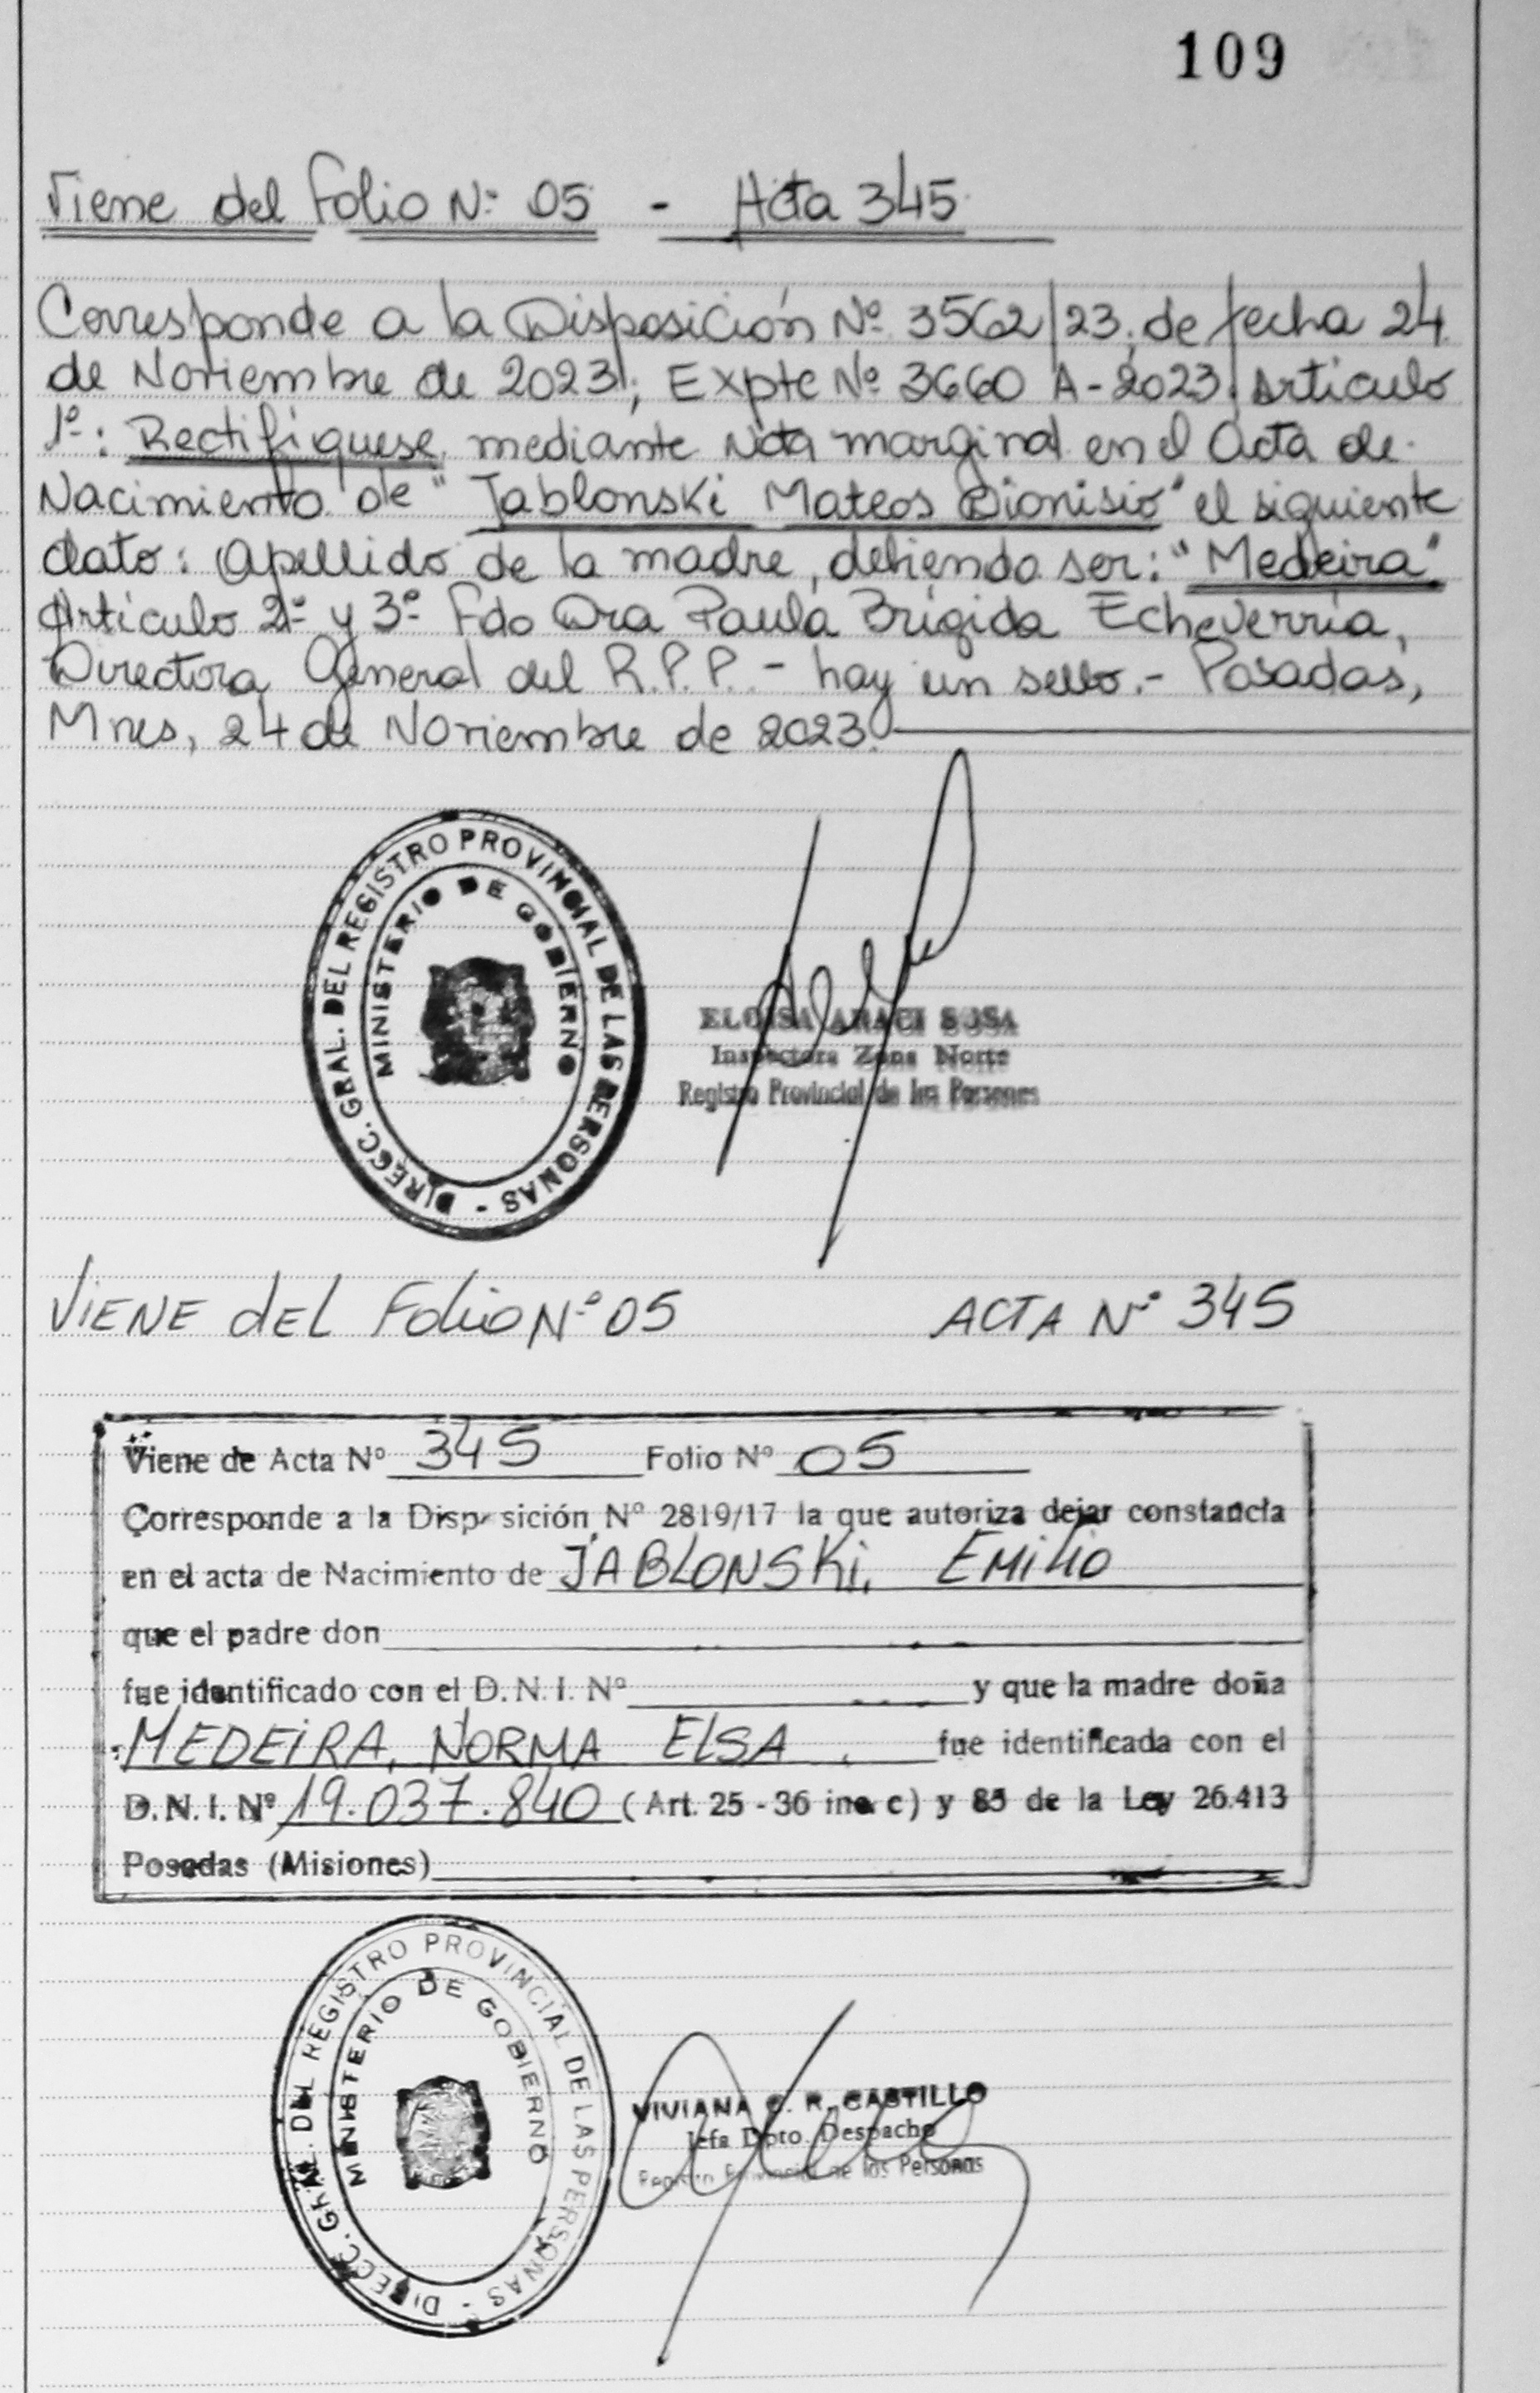 109
Viene del Folio Nº 05 - Acta 345
Corresponde a la Disposición Nº 3562/23, de fecha 24
de Noviembre de 2023; Expte Nº 3660 A-2023. Artículo
1º: Rectifíquese, mediante Nota marginal en el Acta de
Nacimiento de "Jablonski Mateos Dionisio" el siguiente
dato: Apellido de la madre, debiendo ser: "Medeira"
Artículo 2º y 3º Fdo Dra Paula Brígida Echeverría,
Directora General del R.P.P. - hay un sello.- Posadas,
Mnes, 24 de Noviembre de 2023.
DIRECC. GRAL. DEL REGISTRO PROVINCIAL DE LAS PERSONAS -
MINISTERIO DE GOBIERNO
ELOISA ARACI SOSA
Inspectora Zona Norte
Registro Provincial de las Personas
VIENE DEL Folio Nº 05 ACTA Nº 345
Viene de Acta Nº 345 Folio Nº 05
Corresponde a la Disposición Nº 2819/17 la que autoriza dejar constancia
en el acta de Nacimiento de JABLONSKI, EMILIO
que el padre don
fue identificado con el D. N. I. Nº y que la madre doña
MEDEIRA, NORMA ELSA. fue identificada con el
D. N. I. Nº 19.037.840 (Art. 25 - 36 inc. c) y 85 de la Ley 26.413
Posadas (Misiones)
DIRECC. GRAL. DEL REGISTRO PROVINCIAL DE LAS PERSONAS -
MINISTERIO DE GOBIERNO
VIVIANA C. R. CASTILLO
Jefa Dpto. Despacho
Registro Provincial de las Personas